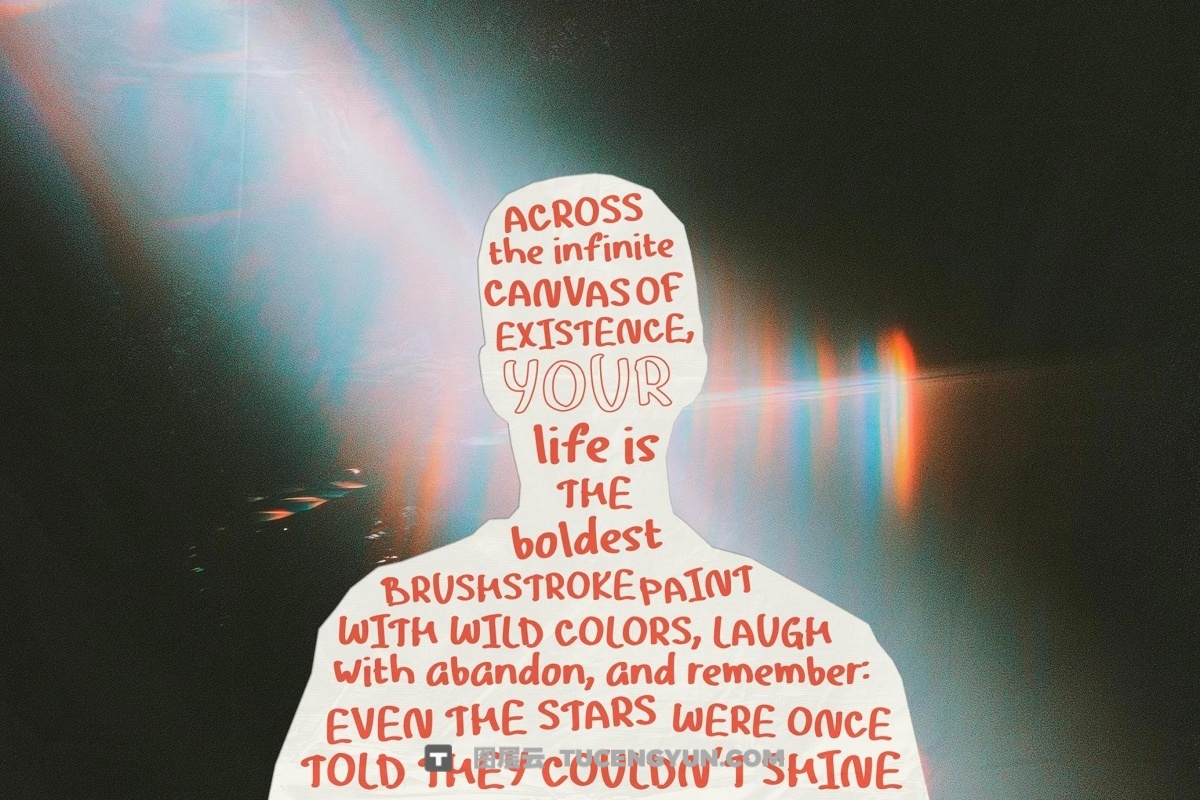 ACROSS
the infinite
CANVAS OF
EXISTENCE,
YOUR
life is
THE
boldest
BRUSHSTROKE PAINT
WITH WILD COLORS, LAUGH
with abandon, and remember:
EVEN THE STARS WERE ONCE
TOLD THEY COULDN'T SHINE
T 图层云 TUCENGYUN.COM